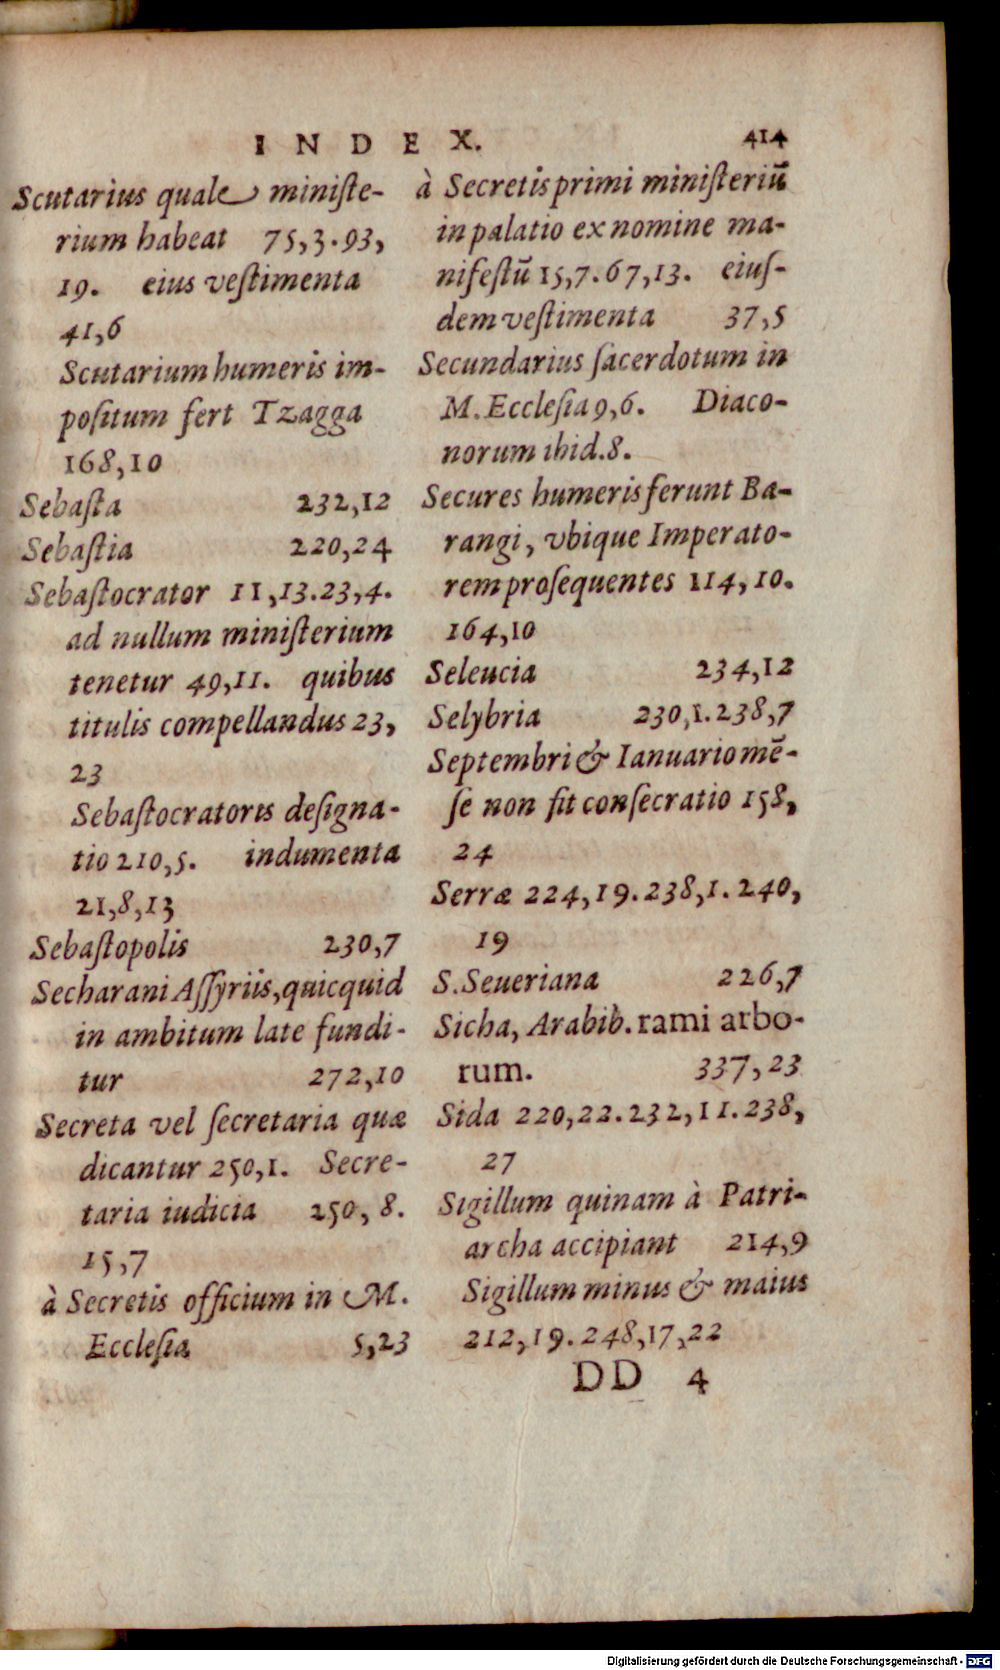 INDEX. 414
Scutarius quale ministe-
rium habeat 75,3.93,
19. eius vestimenta
41,6
Scutarium humeris im-
positum fert Tzagga
168,10
Sebasta 232,12
Sebastia 220,24
Sebastocrator 11,13.23,4.
ad nullum ministerium
tenetur 49,11. quibus
titulis compellandus 23,
23
Sebastocratoris designa-
tio 210,5. indumenta
21,8,13
Sebastopolis 230,7
Secharani Assyriis,quicquid
in ambitum late fundi-
tur 272,10
Secreta vel secretaria quæ
dicantur 250,1. Secre-
taria iudicia 250, 8.
15,7
à Secretis officium in M.
Ecclesia 5,23
à Secretis primi ministeriū
in palatio ex nomine ma-
nifestū 15,7.67,13. eius-
dem vestimenta 37,5
Secundarius sacerdotum in
M. Ecclesia 9,6. Diaco-
norum ibid.8.
Secures humeris ferunt Ba-
rangi, vbique Imperato-
rem prosequentes 114,10.
164,10
Seleucia 234,12
Selybria 230,1.238,7
Septembri & Ianuario mē-
se non fit consecratio 158,
24
Serræ 224,19.238,1.240,
19
S. Seueriana 226,7
Sicha, Arabib. rami arbo-
rum. 337,23
Sida 220,22.232,11.238,
27
Sigillum quinam à Patri-
archa accipiant 214,9
Sigillum minus & maius
212,19.248,17,22
DD 4
Digitalisierung gefördert durch die Deutsche Forschungsgemeinschaft - DFG